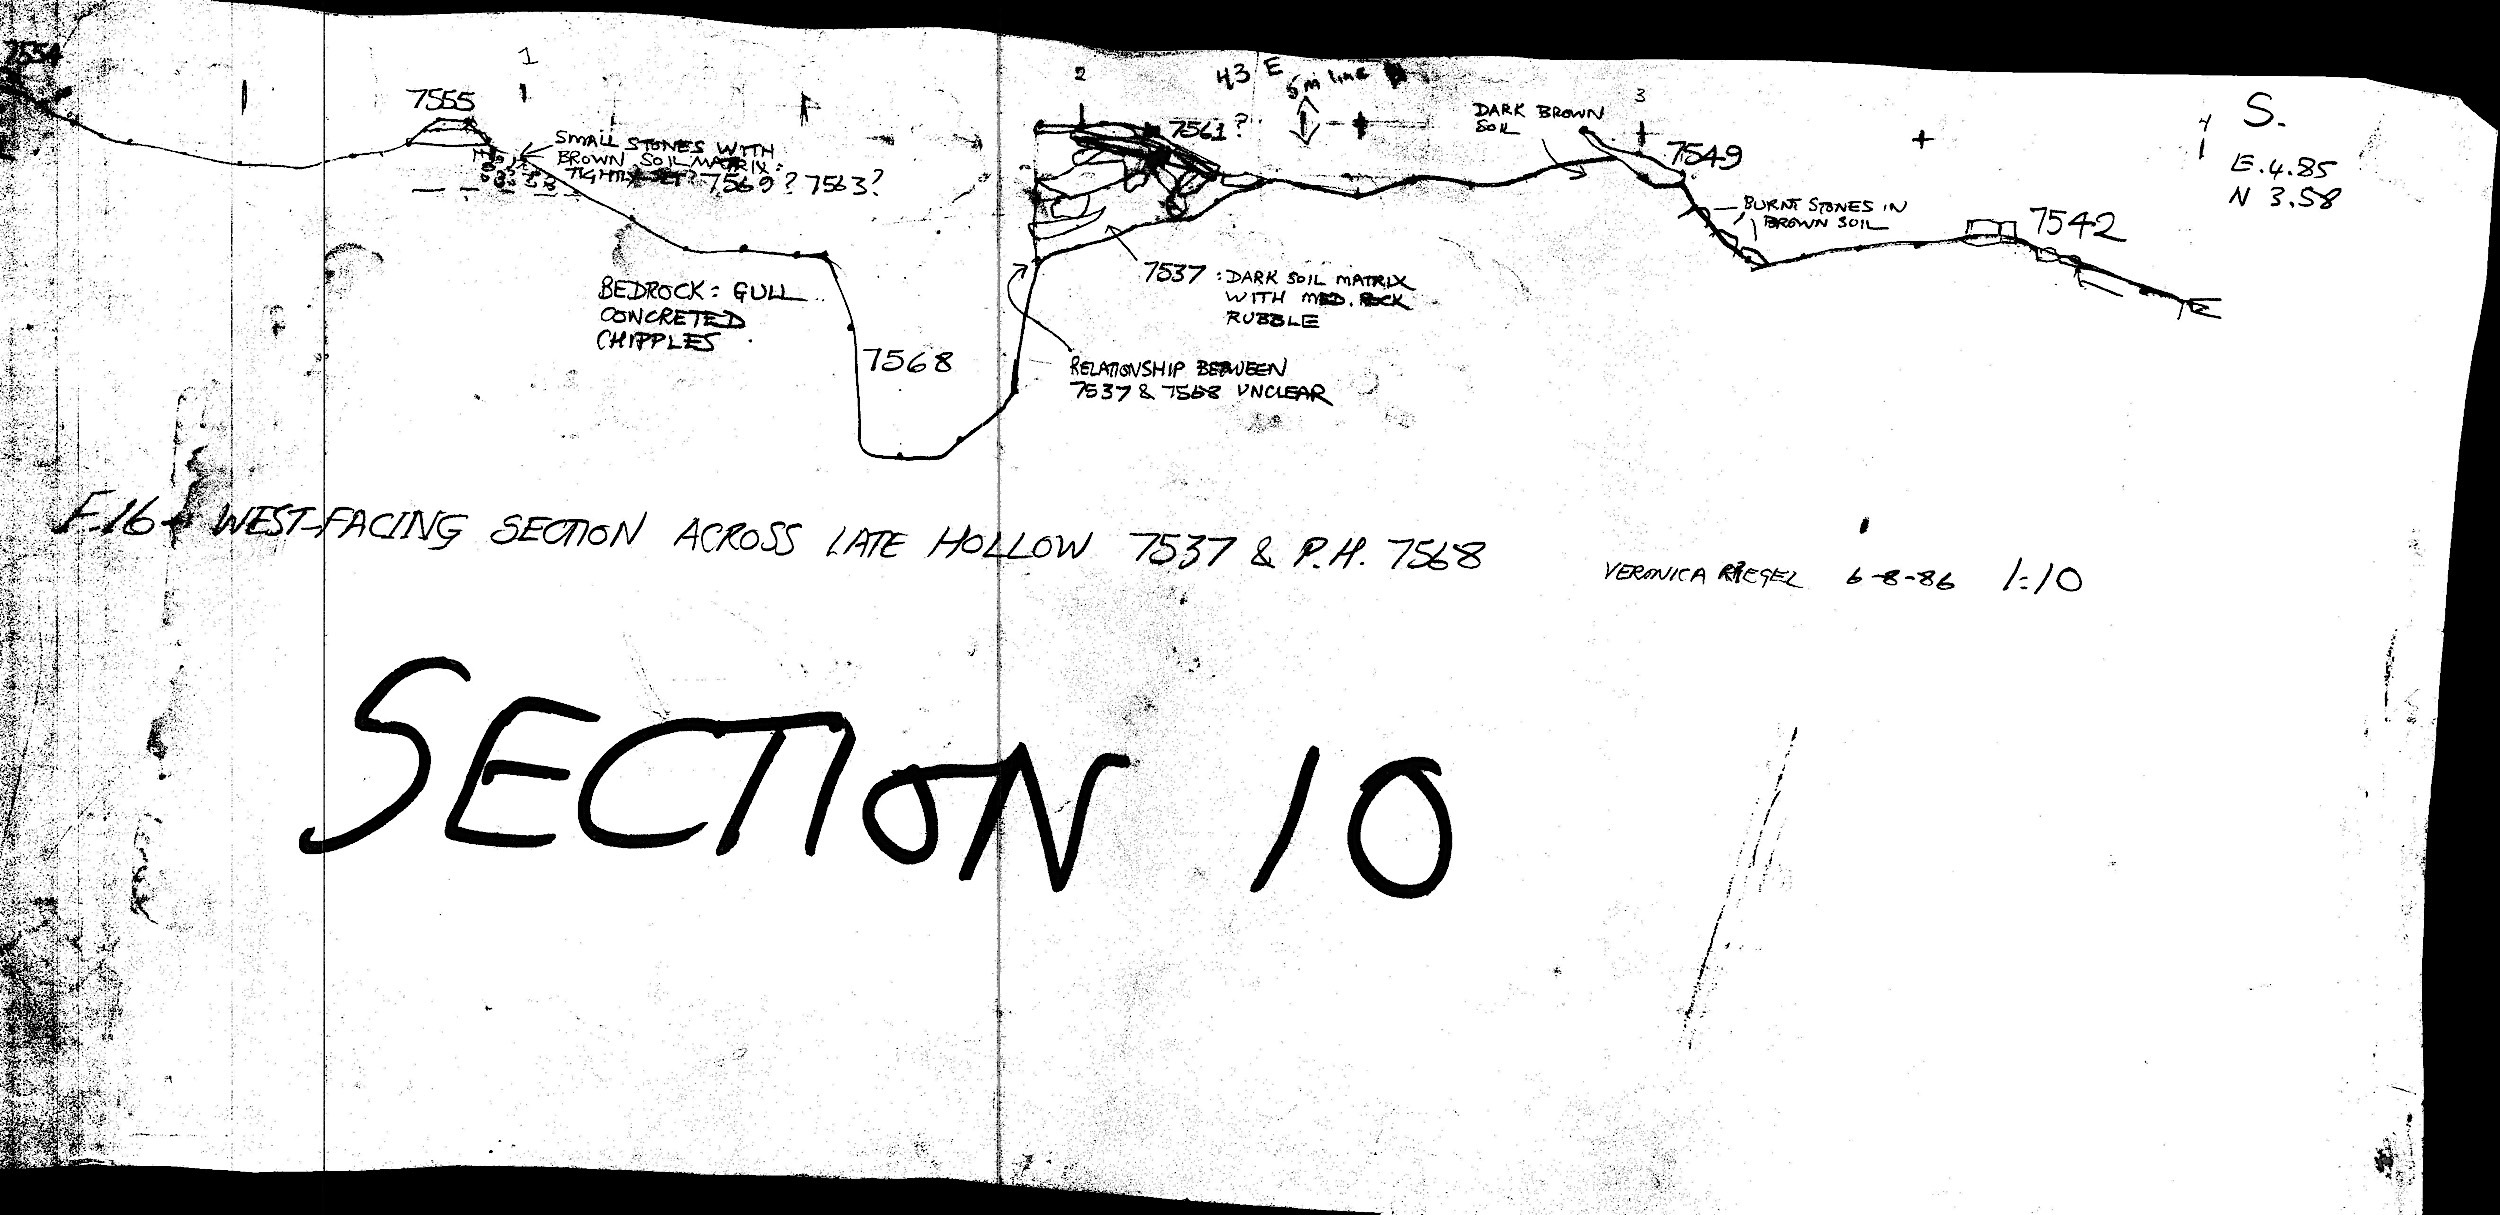 7554
1
2
43 E
5m line
3
4
S.
E. 4.85
N 3.58
7555
SMALL STONES WITH
BROWN SOIL MATRIX:
7569? 7563?
7561?
DARK BROWN
SOIL
7549
BURNT STONES IN
BROWN SOIL
7542
BEDROCK: GULL
CONCRETED
CHIPPLES
7568
7537: DARK SOIL MATRIX
WITH MED. ROCK
RUBBLE
RELATIONSHIP BETWEEN
7537 & 7568 UNCLEAR
F.16 WEST-FACING SECTION ACROSS LATE HOLLOW 7537 & P.H. 7568
VERONICA RIEGEL 6-8-86 1:10
SECTION 10